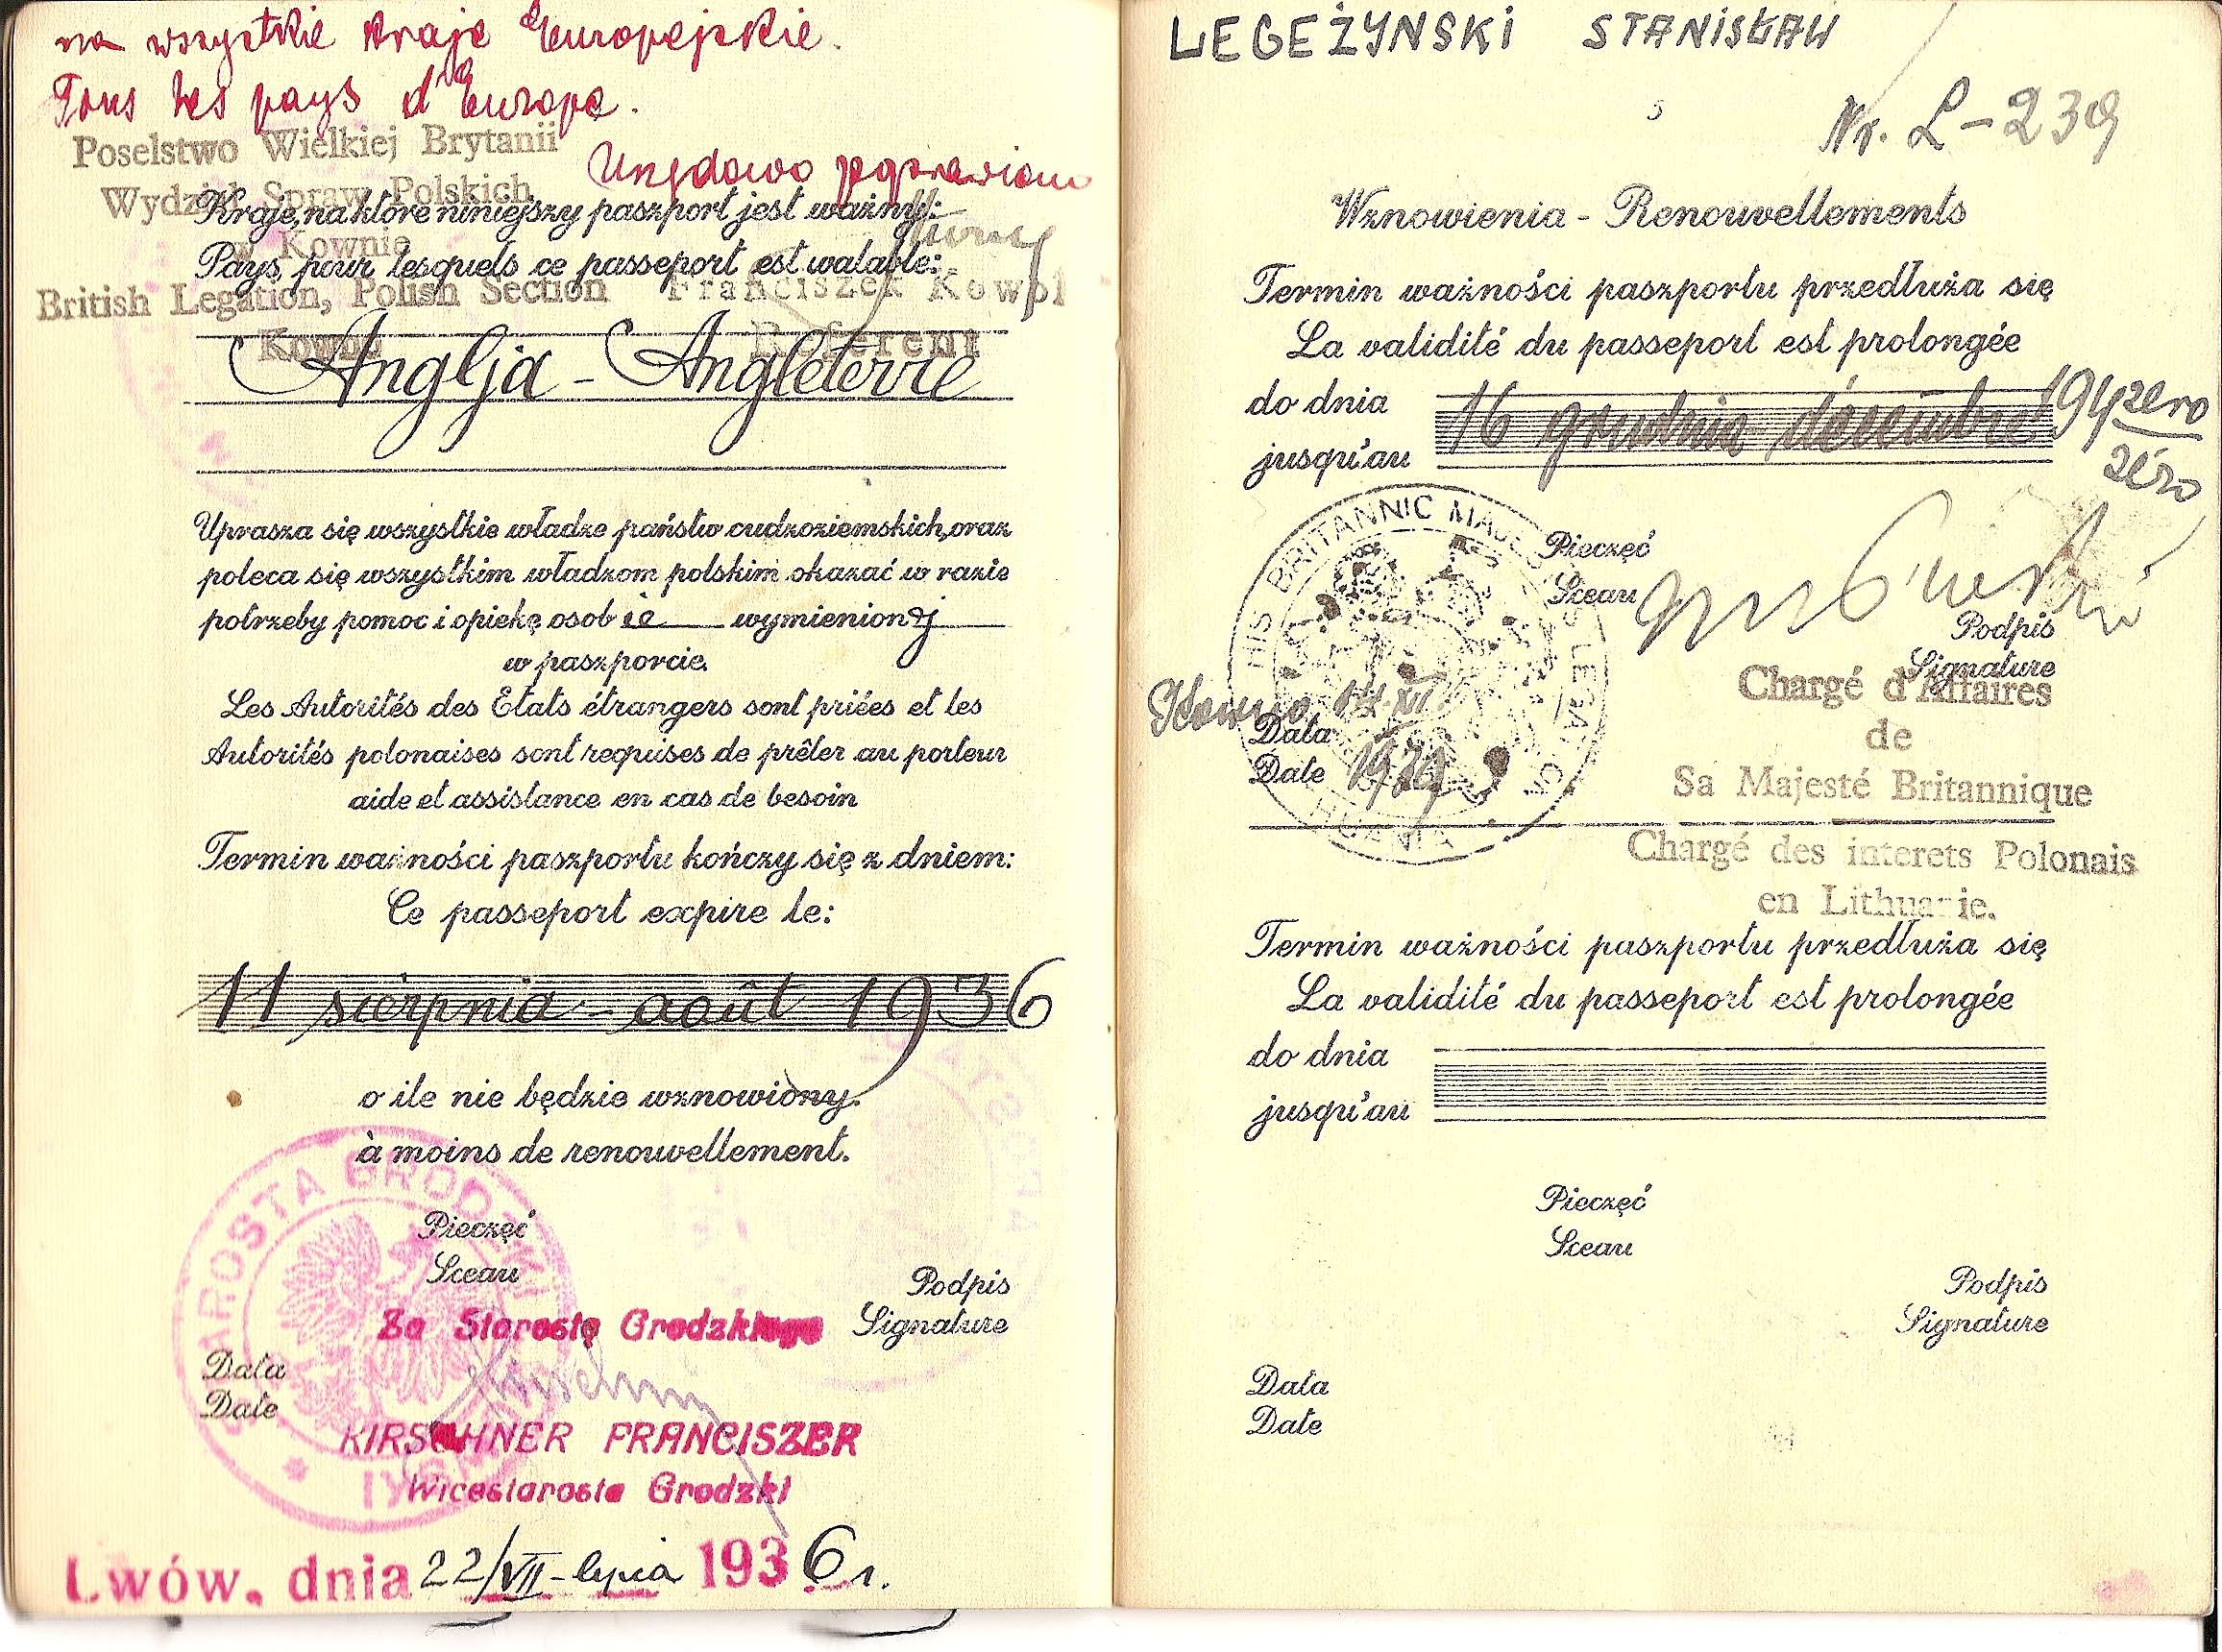 na wszystkie kraje Europejskie.
Tous les pays d'Europe.
Poselstwo Wielkiej Brytanii
Urzędowo poprawiono
Wydział Spraw Polskich
Kraje, na które niniejszy paszport jest ważny:
w Kownie
Pays, pour lesquels ce passeport est valable:
British Legation, Polish Section
Franciszek Kowol
Kowno
Referent
Anglja - Angleterre
Uprasza się wszystkie władze państw cudzoziemskich, oraz
poleca się wszystkim władzom polskim okazać w razie
potrzeby pomoc i opiekę osobie wymienionej
w paszporcie.
Les Autorités des Etats étrangers sont priées et les
Autorités polonaises sont requises de prêter au porteur
aide et assistance en cas de besoin
Termin ważności paszportu kończy się z dniem:
Ce passeport expire le:
11 sierpnia - août 1936
o ile nie będzie wznowiony.
à moins de renouvellement.
STAROSTA GRODZKI
Pieczęć
Sceau
Podpis
Signature
Za Starostę Grodzkiego
Data
Date
KIRSCHNER FRANCISZEK
Wicestarosta Grodzki
Lwów, dnia 22/VII - lipca 1936 r.
LEGEŻYNSKI STANISŁAW
5
Nr. L-239
Wznowienia - Renouvellements
Termin ważności paszportu przedłuża się
La validité du passeport est prolongée
do dnia
jusqu'au
16 grudnia décembre 194 zero
zéro
HIS BRITANNIC MAJESTY'S LEGATION
LITHUANIA
Pieczęć
Sceau
Podpis
Signature
Kowno 14.XI.
1939
Data
Date
Chargé d'Affaires
de
Sa Majesté Britannique
Chargé des interets Polonais
en Lithuanie.
Termin ważności paszportu przedłuża się
La validité du passeport est prolongée
do dnia
jusqu'au
Pieczęć
Sceau
Podpis
Signature
Data
Date